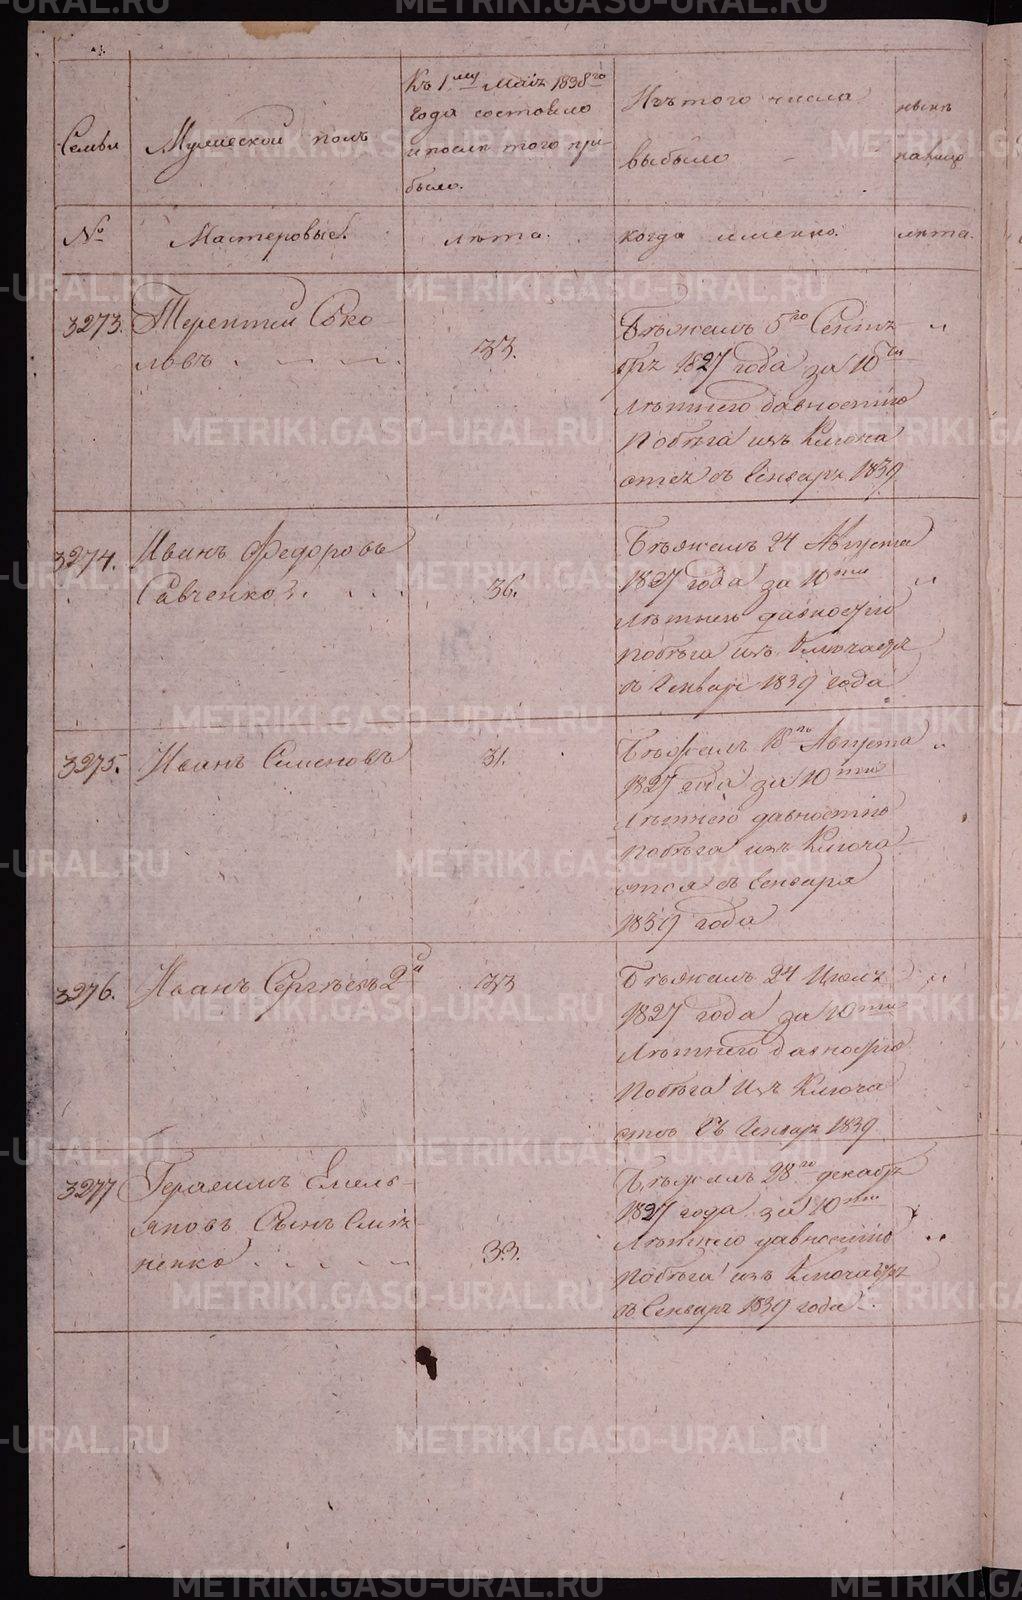 Семьи
Мужеской полъ
Къ 1му Маія 1838го
года состояло
и после того при-
было.
Изъ того числа
выбыло
ныне
налицо
№
Мастеровые.
лѣта.
когда именно.
лѣта.
3273.
Терентей Соко-
ловъ
33.
Бѣжалъ 5го Сентя
бря 1827 года за 10ти
лѣтнею давностію
побѣга изъ Ключа
ется съ Генваря 1839
3274.
Иванъ Федоровъ
Савченков.
36.
Бѣжалъ 24 Августа
1827 года за 10ти
лѣтнею давностію
побѣга изъ Ключается
съ Генваря 1839 года
3275.
Иванъ Семеновъ
31.
Бѣжалъ 18го Августа
1827 года за 10ти
лѣтнею давностію
побѣга изъ Ключа
ется съ Генваря
1839 года
3276.
Иванъ Сергѣевъ 2й
33
Бѣжалъ 24 Июля
1827 года за 10ти
лѣтнею давностію
побѣга изъ Ключа
ется съ Генваря 1839
3277
Герасимъ Емель-
яновъ Сынъ
ненко
33.
Бѣжалъ 28го декабря
1827 года за 10ти
лѣтнею давностію
побѣга изъ Ключается
съ Генваря 1839 года
METRIKI.GASO-URAL.RU